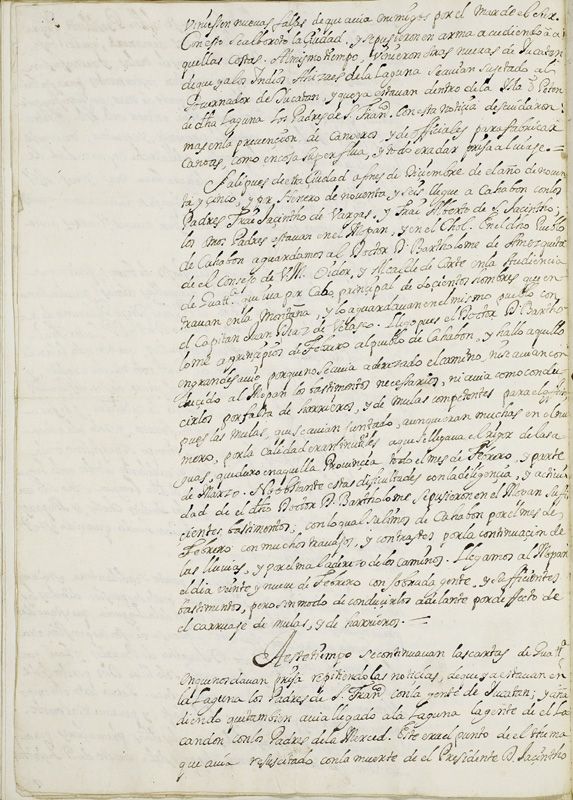 viniessen nuevas falsas de que avia enimigos por el Mar de el Sur.
Con esto se alboroto la Ciudad. y se pusieron en arma acudiendo a a
quellas costas. Al mismo tiempo, vinieron otras nuevas de Yucatan
de que ya los Indios Ahizaes de la Laguna se avian sugetado al
Governador de Yucatan, y que ya estavan dentro de la Isla o Peten
de dha Laguna los Padres de S. Fran.co Con esta noticia descuidaron
mas en la prevencion de Canoeros y de officiales para fabricar
canoas, como en cosa superflua, y todo era dar prisa a la ir se. —
Sali pues de esta Ciudad a fines de Diciembre de el año de noven
ta y cinco, y por Henero de noventa y seis llegue a Cahabon con los
Padres Frai Jacintho de Vargas, y Frai Alberto de S. Jacintho;
los mos Padres estavan en el Mopan, y en el Chol. En el dho Pueblo
de Cahabon aguardamos al Doctor D. Bartholome de Amezquita
de el Consejo de V.M. Oidor, y Alcalde de Corte en la Audiencia
de Guatt.a que iva por Cabo principal de docientos hombres que en
travan en la Montaña, y lo aguardavan en el mismo pueblo con
el Capitan Juan Diaz de Velasco. Llego pues el Doctor D. Bartho
lome a principios de Febrero al pueblo de Cahabon, y hallo aquello
en grande atraso porque no se avia aderezado el camino, ni se avian con
ducido al Mopan los bastimentos necessarios, ni avia como condu
cirlos por falta de harrieros, y de mulas competentes para el
pues las mulas, que se avian juntado, aunque eran muchas en el nu
mero, por la calidad eran inutiles a que se llegava el rigor de las a
guas, que duro en aquella Provincia todo el mes de Febrero, y parte
de Marzo. No obstante estas dificultades con la diligencia, y activi
dad de el dho Doctor D. Bartholome se pusieron en el Mopan suffi
cientes bastimentos, con lo qual salimos de Cahabon por el mes de
Febrero con muchos trabajos, y contrastes por la continuacion de
las lluvias, y por el mal aderezo de los caminos. Llegamos al Mopan
el dia veinte y nueve de Febrero con sobrada gente, y sufficientes
bastimentos, pero sin modo de conducirlos adelante por defecto de
el carruage de mulas, y de harrieros. —
A este tiempo se continuavan las cartas de Guatt.a
en que nos davan prisa repitiendo las noticias, de que ya estavan en
la Laguna los Padres de S. Fran.co con la gente de Yucatan; y aña
diendo que tambien avia llegado a la Laguna la gente de el La
candon, con los Padres de la Merced. Este era el punto de el thema
que avia resuscitado con la muerte de el Presidente D. Jacintho